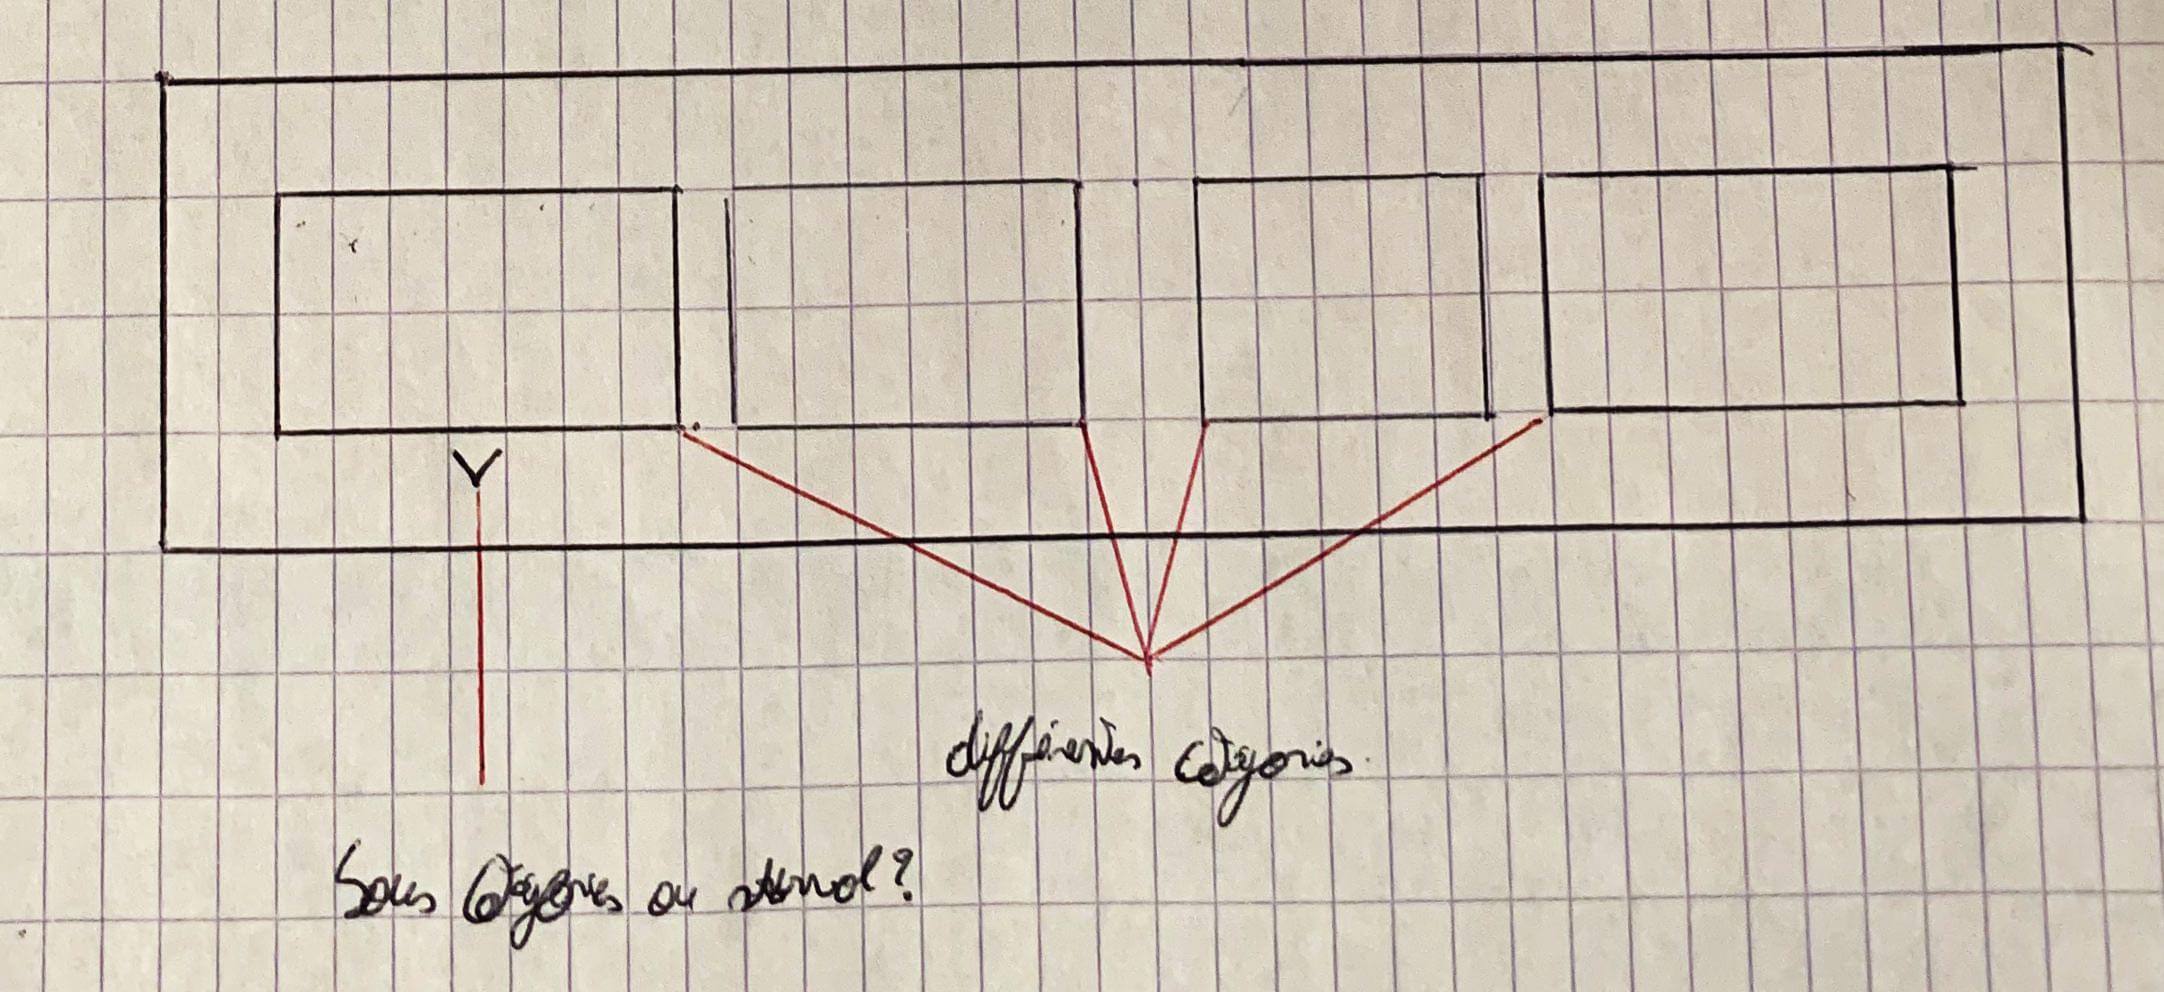 différentes catégories.
Sous catégories ou ?